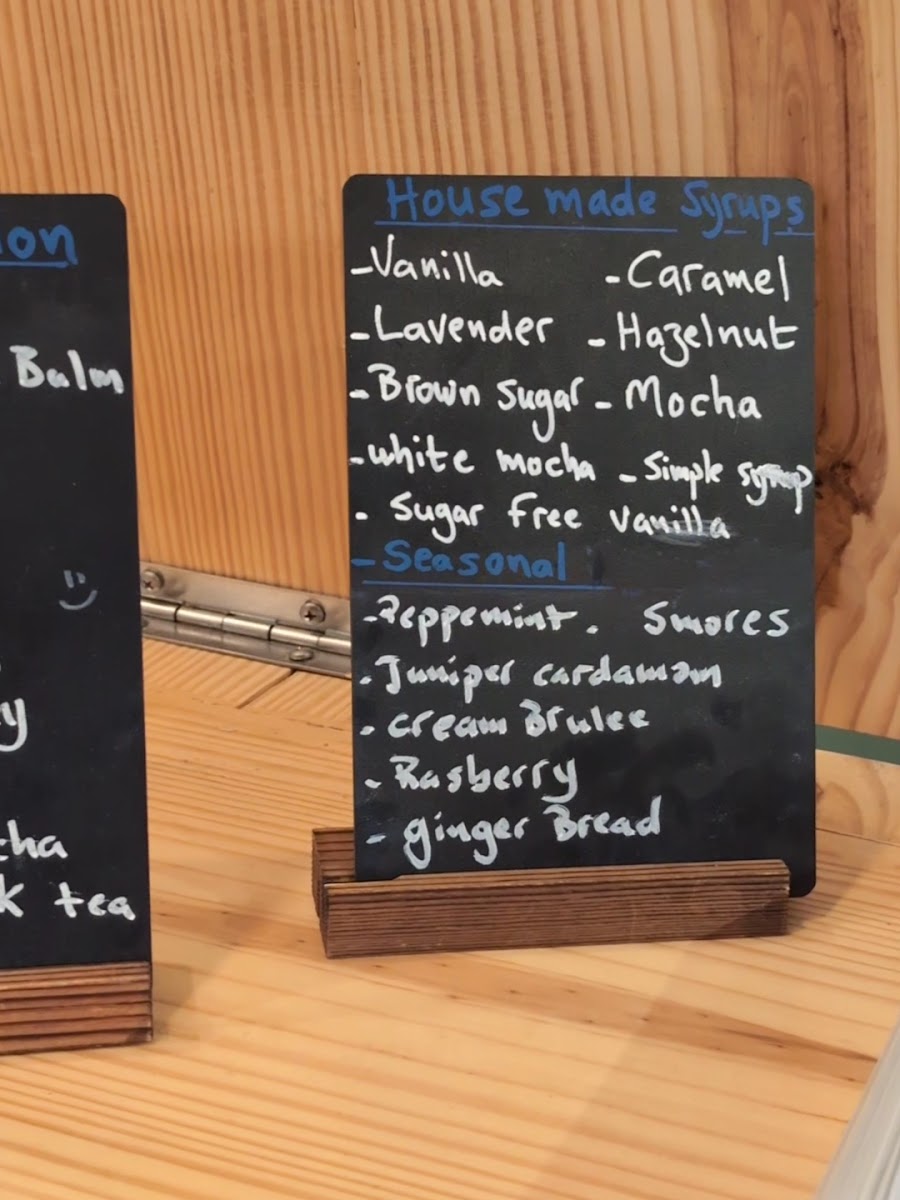 on
Balm
y
cha
k tea
House made Syrups
-Vanilla -Caramel
-Lavender -Hazelnut
-Brown Sugar -Mocha
-white mocha -Simple syrup
- Sugar Free Vanilla
-Seasonal
-Peppemint. Smores
-Juniper cardamom
-cream Brulee
- Rasberry
- ginger Bread